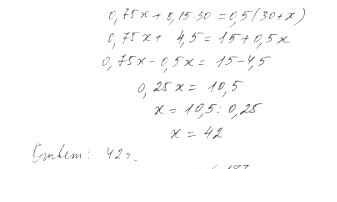 0,75x + 0,15·30 = 0,5(30+x)
0,75x + 4,5 = 15 + 0,5x
0,75x - 0,5x = 15 - 4,5
0,25x = 10,5
x = 10,5 : 0,25
x = 42
Ответ: 42г.